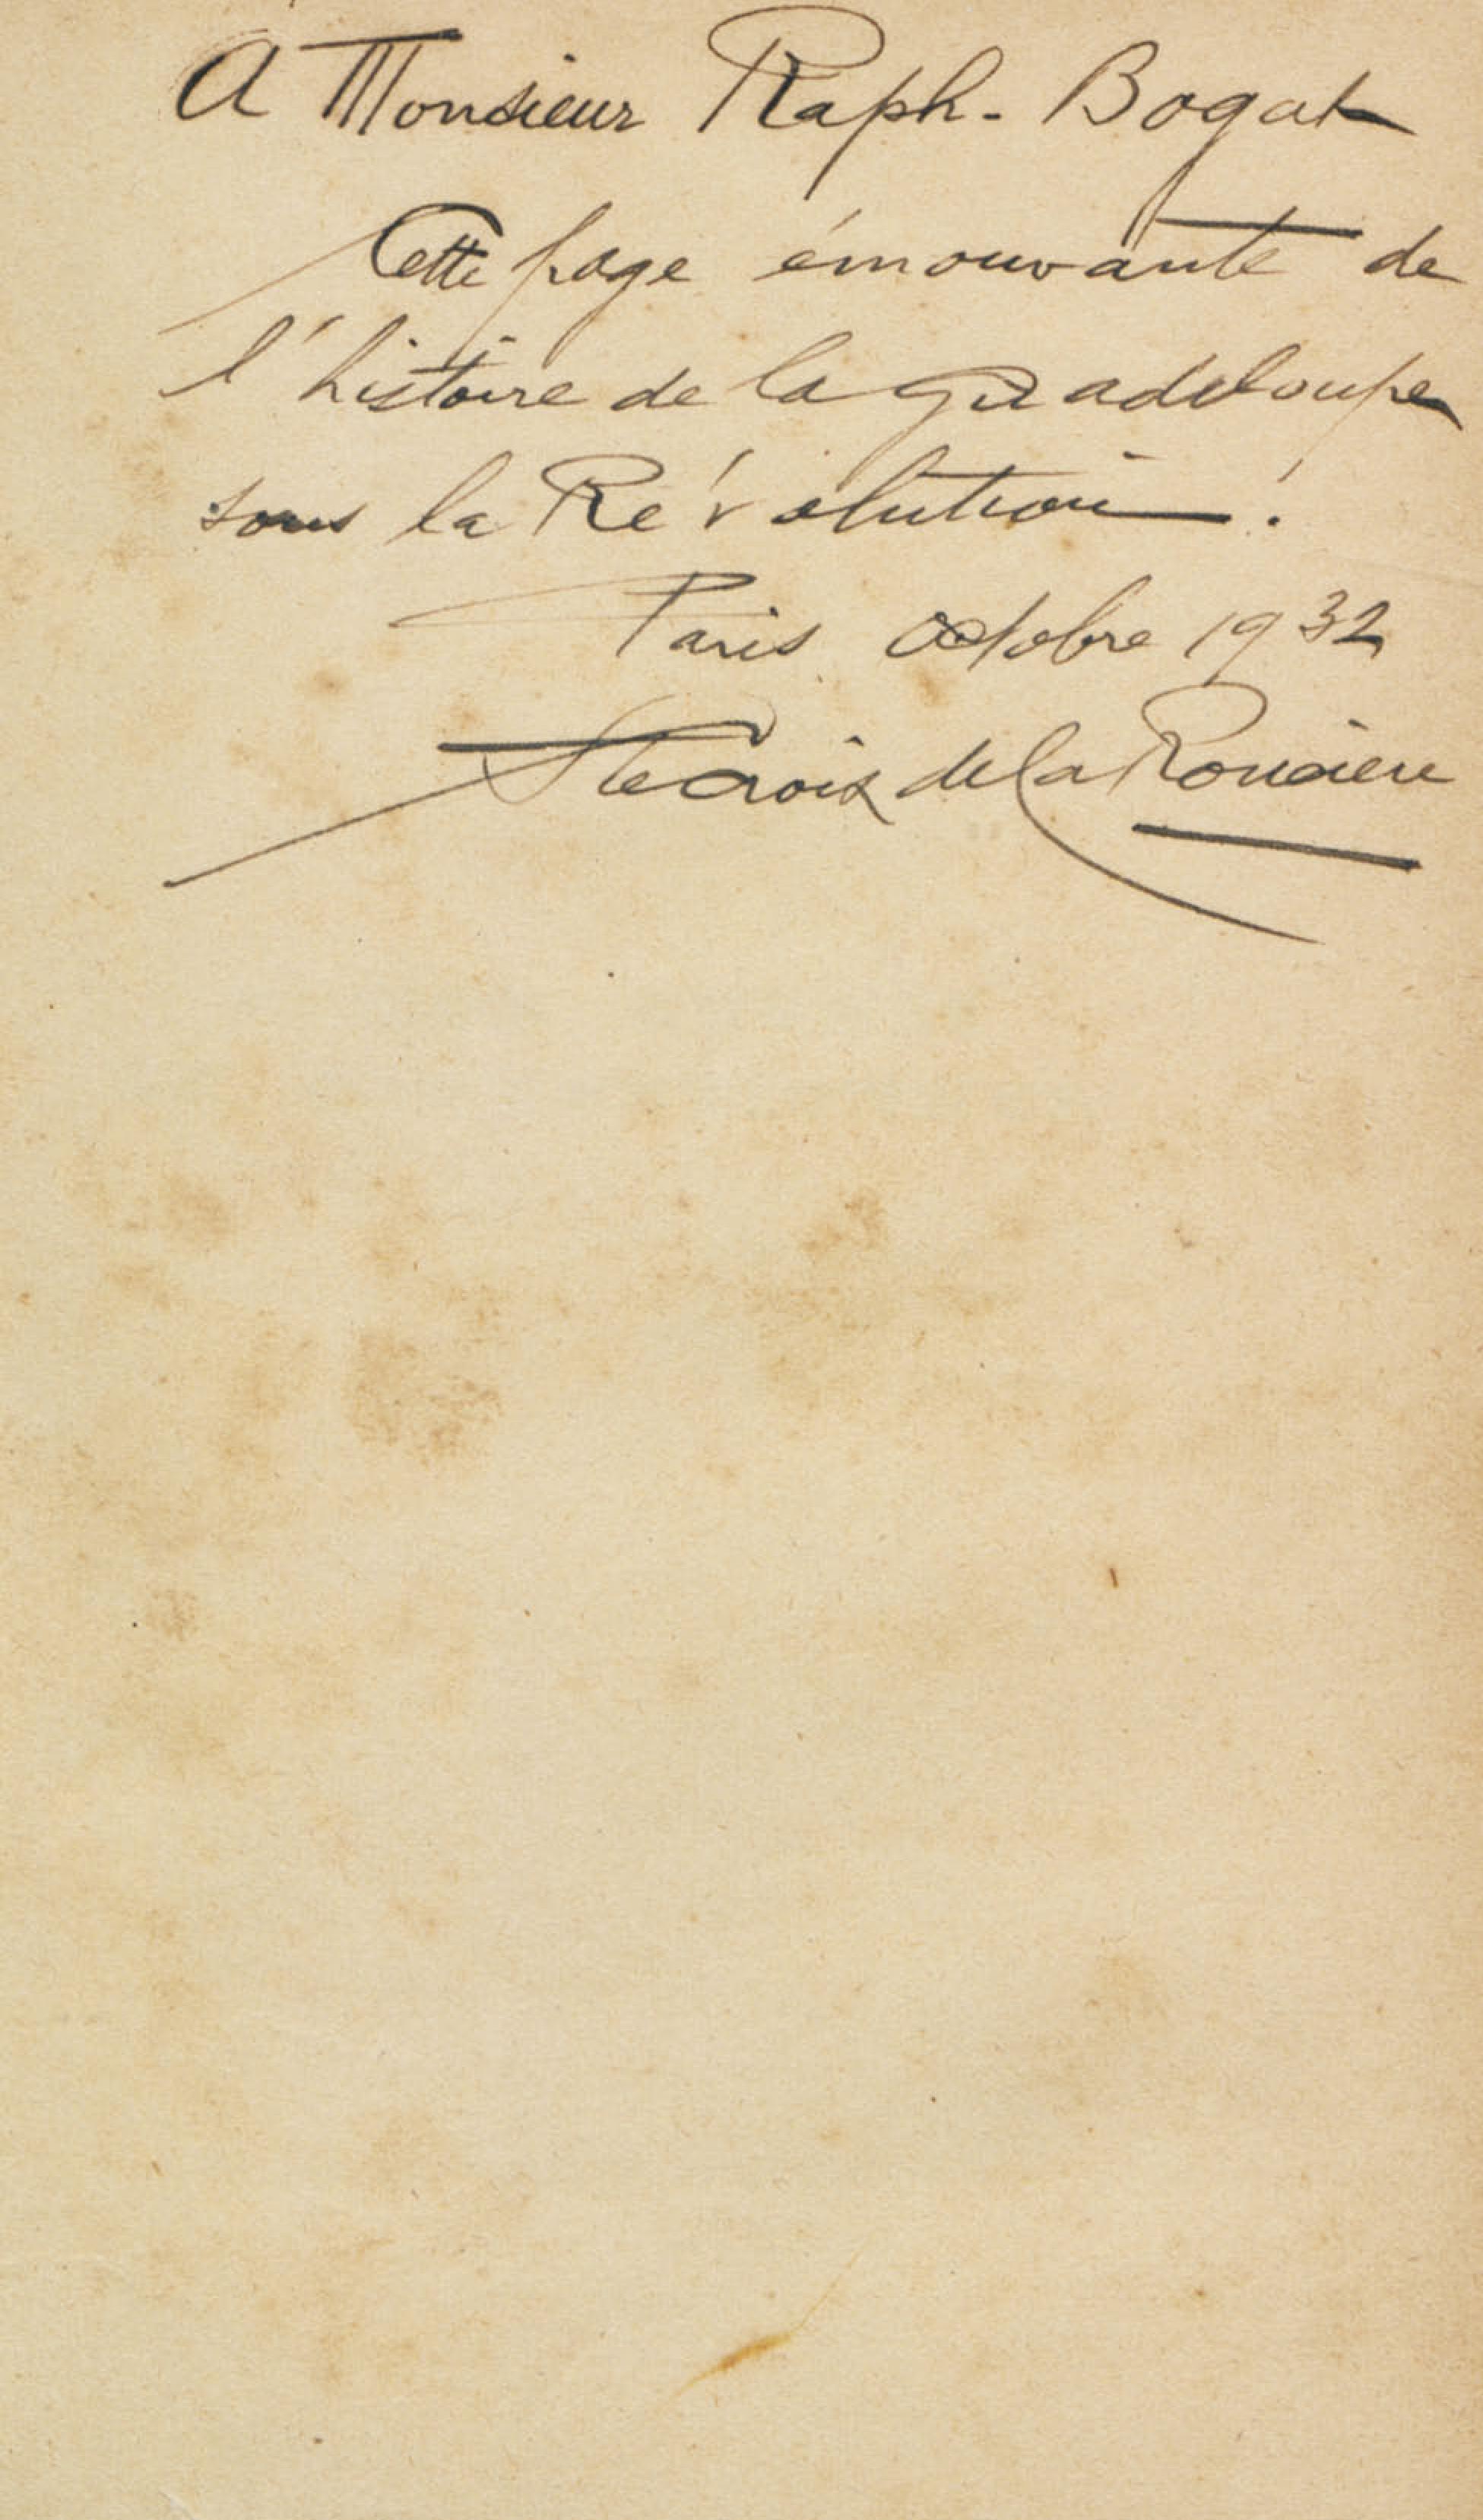 A Monsieur Raph. Bogat
Cette page émouvante de
l'histoire de la Guadeloupe
sous la Révolution.
Paris Octobre 1932
Ste Croix de la Roncière